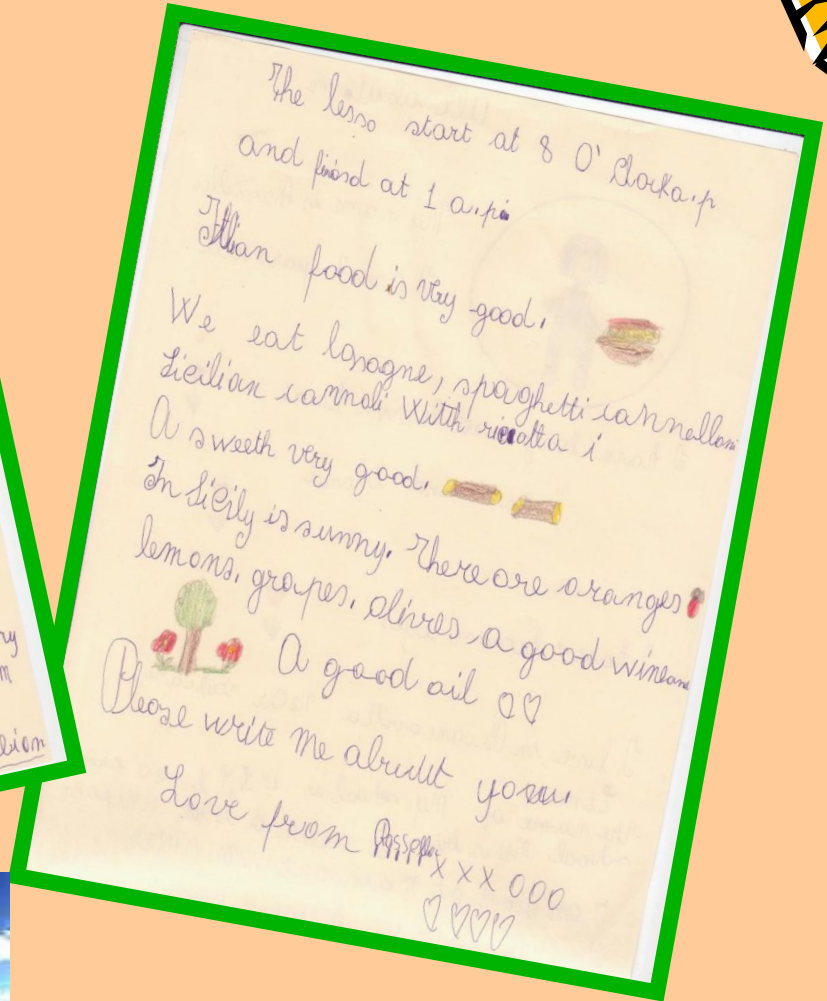 The lesso start at 8 O' Clocka.p
and finisd at 1 a.p.
Itlian food is very good.
We eat lasagne, spaghetti cannelloni
Sicilian cannoli With ricotta i
A sweeth very good.
In Sicily is sunny. There are oranges
lemons, grapes, olives, a good wine and
A good oil
Please write me about you
Love from
xxx ooo
ry
m